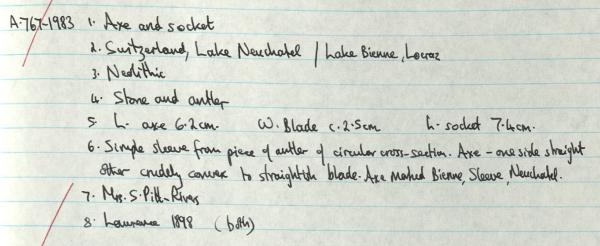 A·767-1983 1. Axe and socket
2. Switzerland, Lake Neuchatel / Lake Bienne, Locraz
3. Neolithic
4. Stone and antler
5. L. axe 6.2cm. W. Blade c. 2.5cm L. socket 7.4cm.
6. Simple sleeve from piece of antler of circular cross-section. Axe - one side straight
other crudely convex to straightish blade. Axe marked Bienne, Sleeve, Neuchatel.
7. Mrs. S. Pitt-Rivers
8. Lawrence 1898 (both)